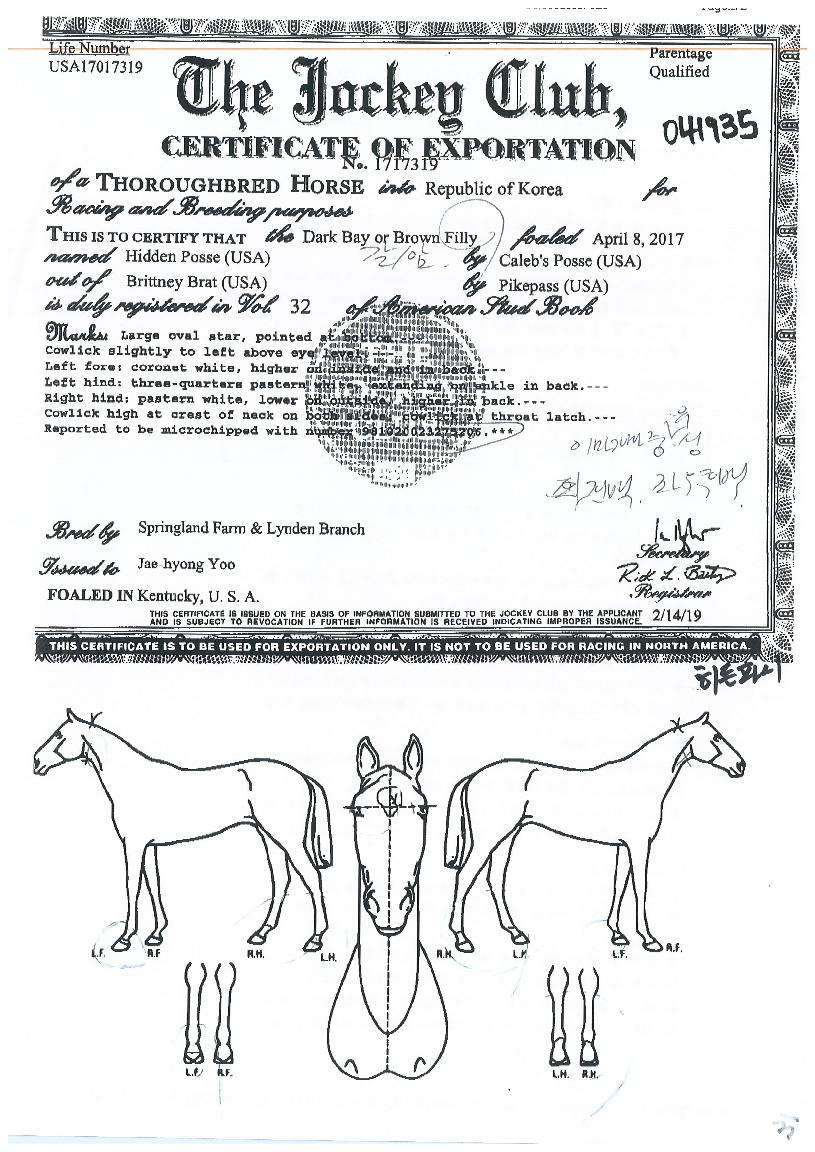 Life Number
USA17017319
Parentage
Qualified
The Jockey Club,
041935
CERTIFICATE OF EXPORTATION
No. 1717319
of a THOROUGHBRED HORSE into Republic of Korea for
Racing and Breeding purposes
THIS IS TO CERTIFY THAT the Dark Bay or Brown Filly foaled April 8, 2017
named Hidden Posse (USA) 갈/암. by Caleb's Posse (USA)
out of Brittney Brat (USA) by Pikepass (USA)
is duly registered in Vol. 32 of American Stud Book
Marks: Large oval star, pointed at bottom.---
Cowlick slightly to left above eye level.---
Left fore: coronet white, higher on inside and in back.---
Left hind: three-quarters pastern white, extending on ankle in back.---
Right hind: pastern white, lower on outside, higher in back.---
Cowlick high at crest of neck on both sides, cowlick at throat latch.---
Reported to be microchipped with number 981020023275206.***
Bred by Springland Farm & Lynden Branch
Issued to Jae hyong Yoo
Secretary
Rick L. Bailey
Registrar
FOALED IN Kentucky, U. S. A.
THIS CERTIFICATE IS ISSUED ON THE BASIS OF INFORMATION SUBMITTED TO THE JOCKEY CLUB BY THE APPLICANT
AND IS SUBJECT TO REVOCATION IF FURTHER INFORMATION IS RECEIVED INDICATING IMPROPER ISSUANCE. 2/14/19
THIS CERTIFICATE IS TO BE USED FOR EXPORTATION ONLY. IT IS NOT TO BE USED FOR RACING IN NORTH AMERICA.
히든파시
L.F. R.F R.H. L.H. R.H. L.H L.F. R.F.
L.F. R.F. L.H. R.H.